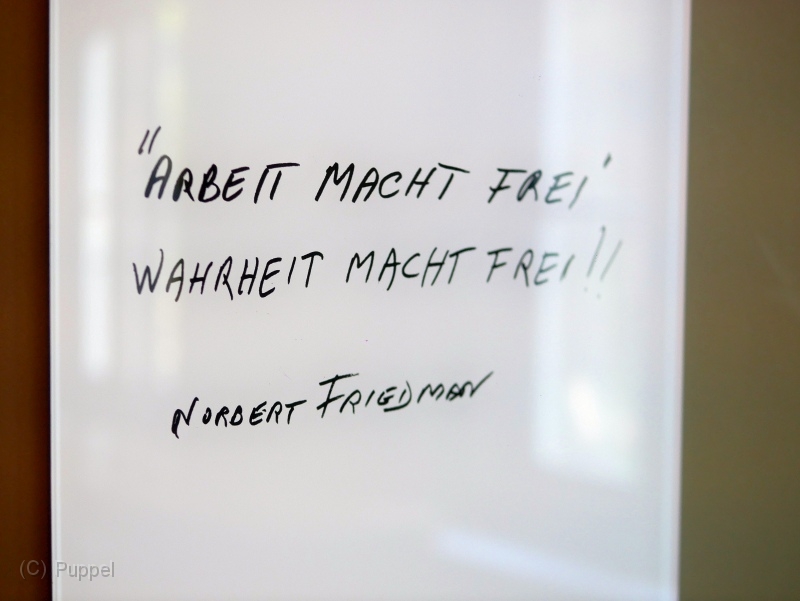 "ARBEIT MACHT FREI"
WAHRHEIT MACHT FREI!!
NORBERT FRIEDMAN
(C) Puppel